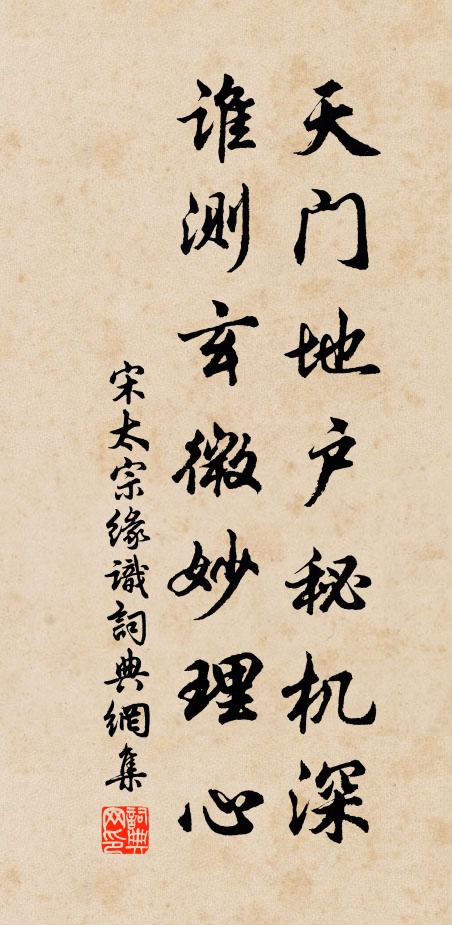 天门地户秘机深
谁测玄微妙理心
宋太宗缘識詞典網集
詞典网印